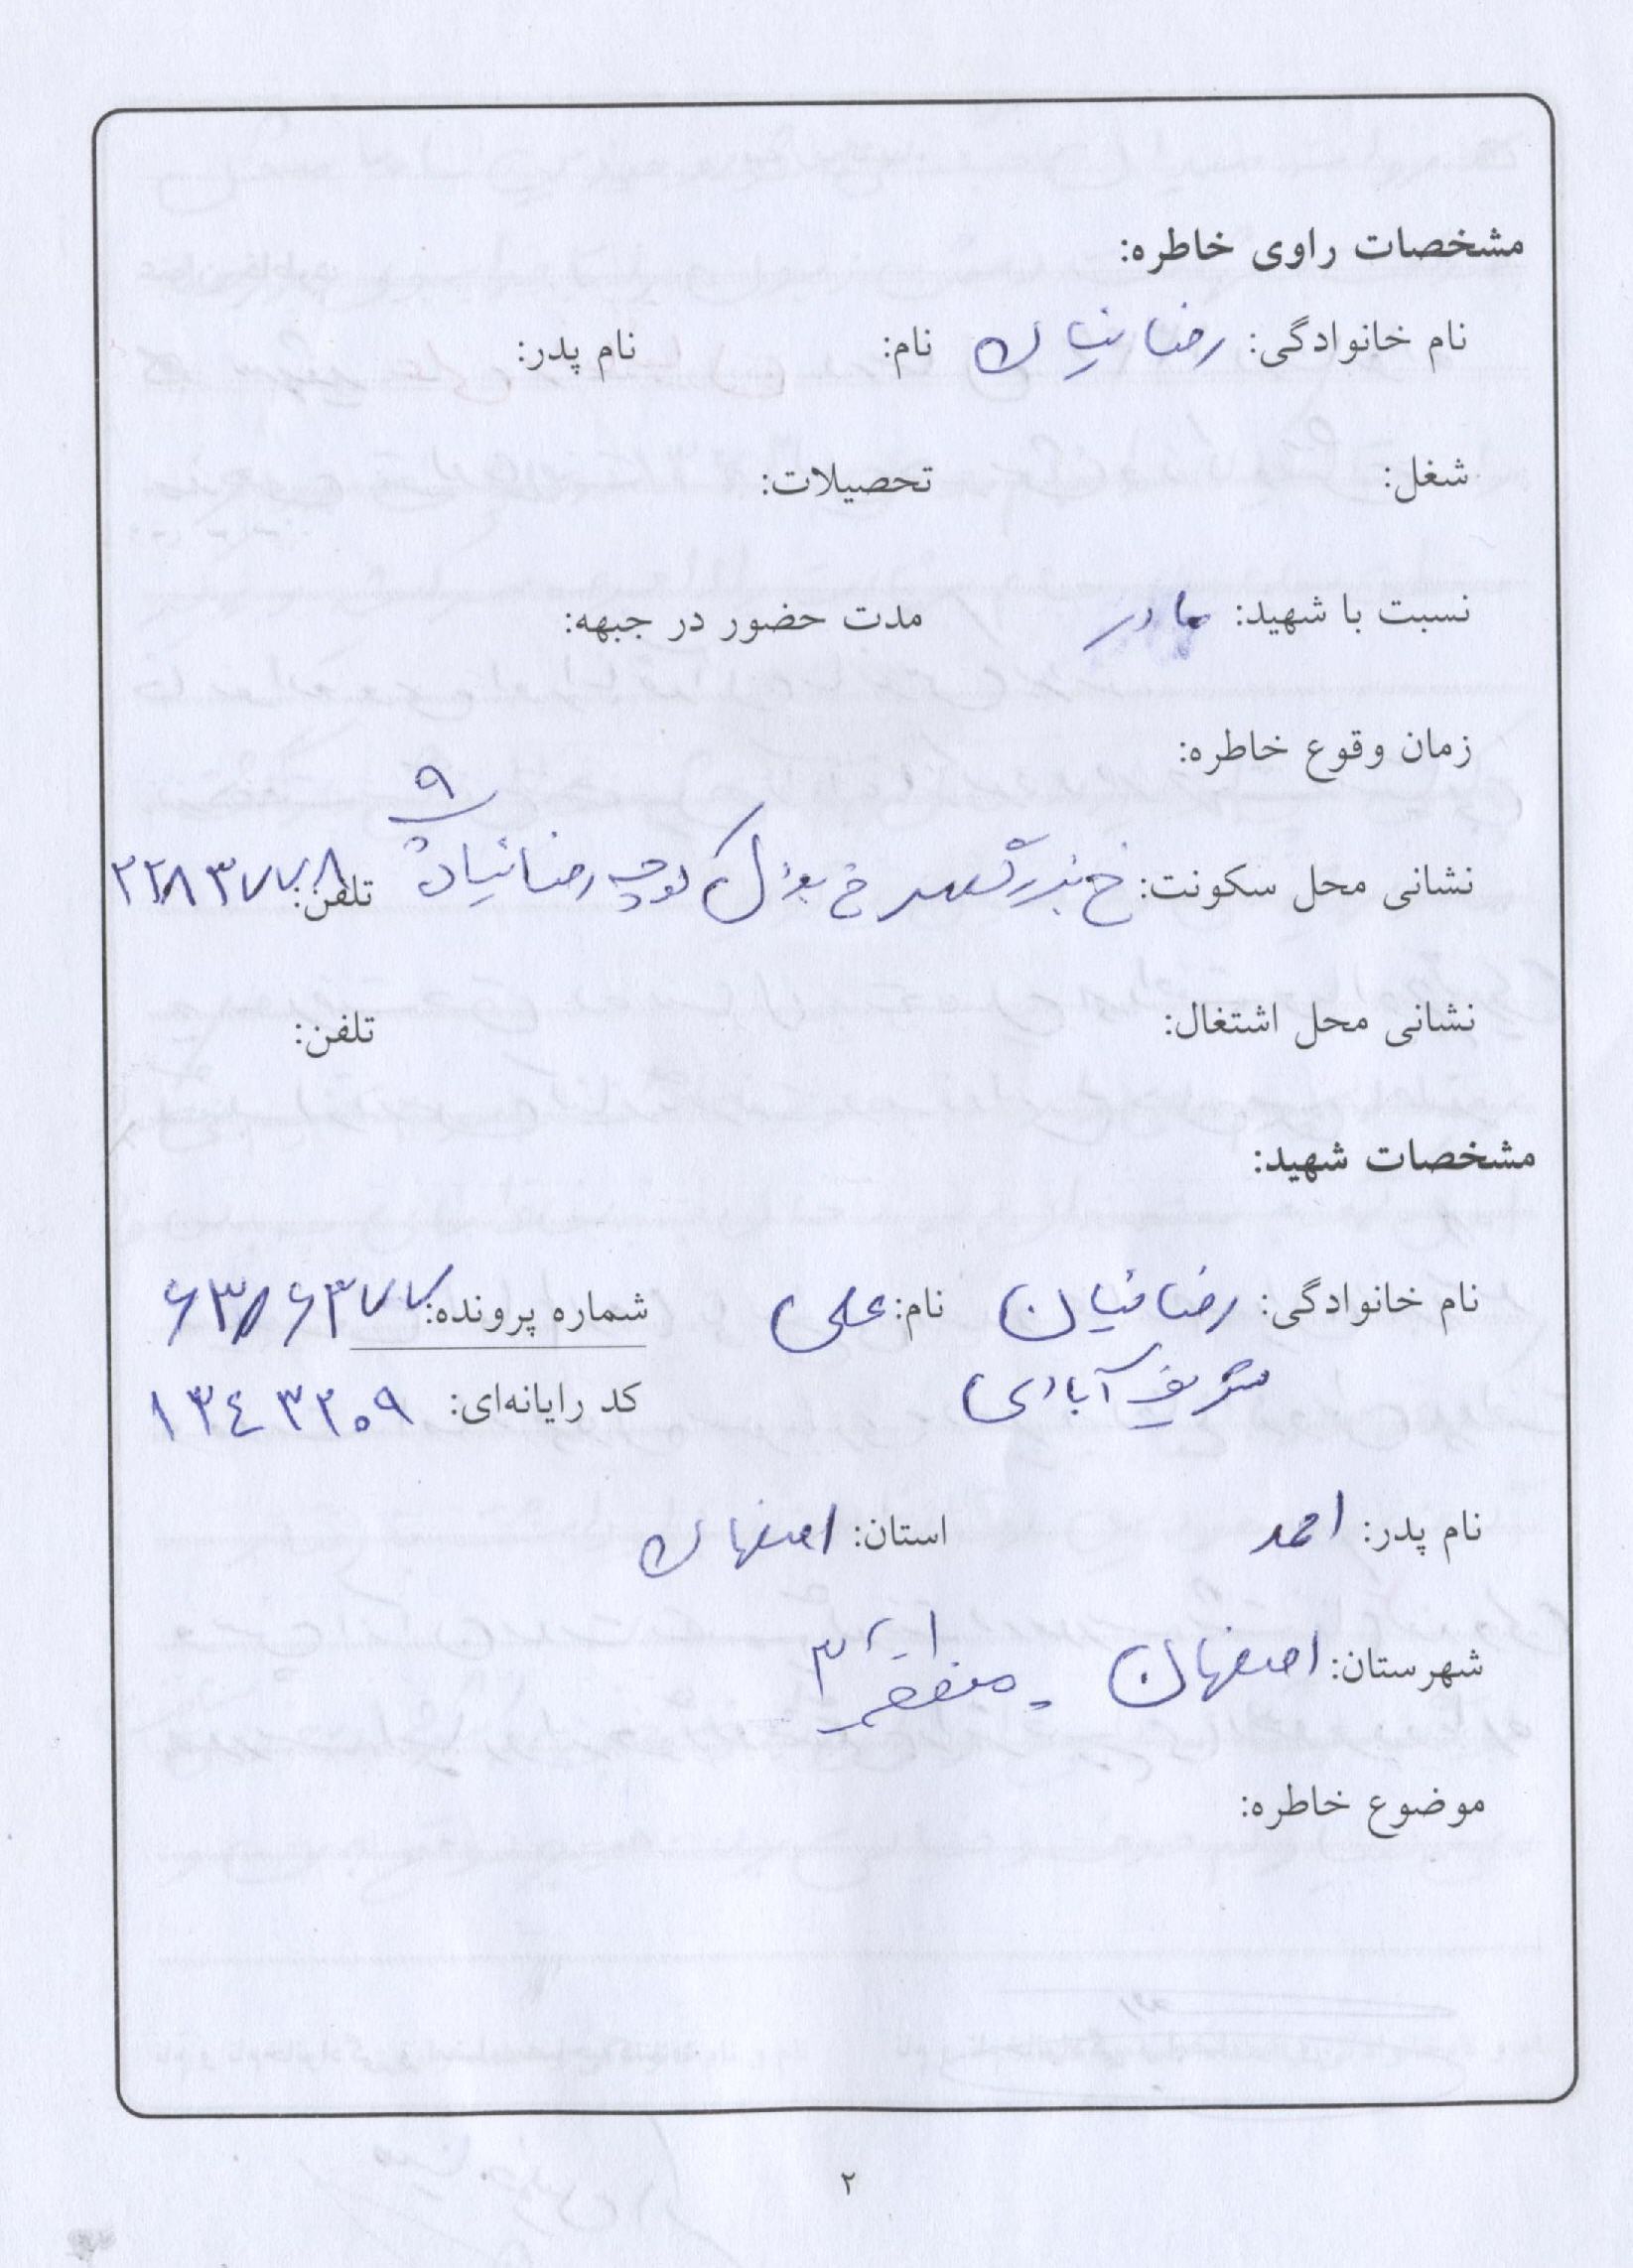 مشخصات راوی خاطره:
نام خانوادگی: رضانیان نام: نام پدر:
شغل: تحصیلات:
نسبت با شهید: مادر مدت حضور در جبهه:
زمان وقوع خاطره:
۹
نشانی محل سکونت: خ بزرگمهر خ کوچه رضانیان تلفن: ۲۲۸۳۷۷۸
نشانی محل اشتغال: تلفن:
مشخصات شهید:
نام خانوادگی: رضانیان نام: علی شماره پرونده: ۶۳۸۶۳۷۷
شریف آبادی کد رایانه‌ای: ۱۳۴۳۲۰۹
نام پدر: احمد استان: اصفهان
شهرستان: اصفهان - منطقه ۳
موضوع خاطره:
۲